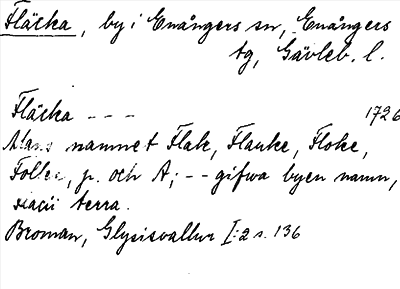 Fläcka, by i Enångers sn, Enångers
tg, Gävleb. l.
Fläcka --- 1726
Mans namnet Flak, Flauke, Floke,
Folke, p. och A; -- gifwa byen namn,
terra.
Broman, Glysisvallur I:2 s. 136